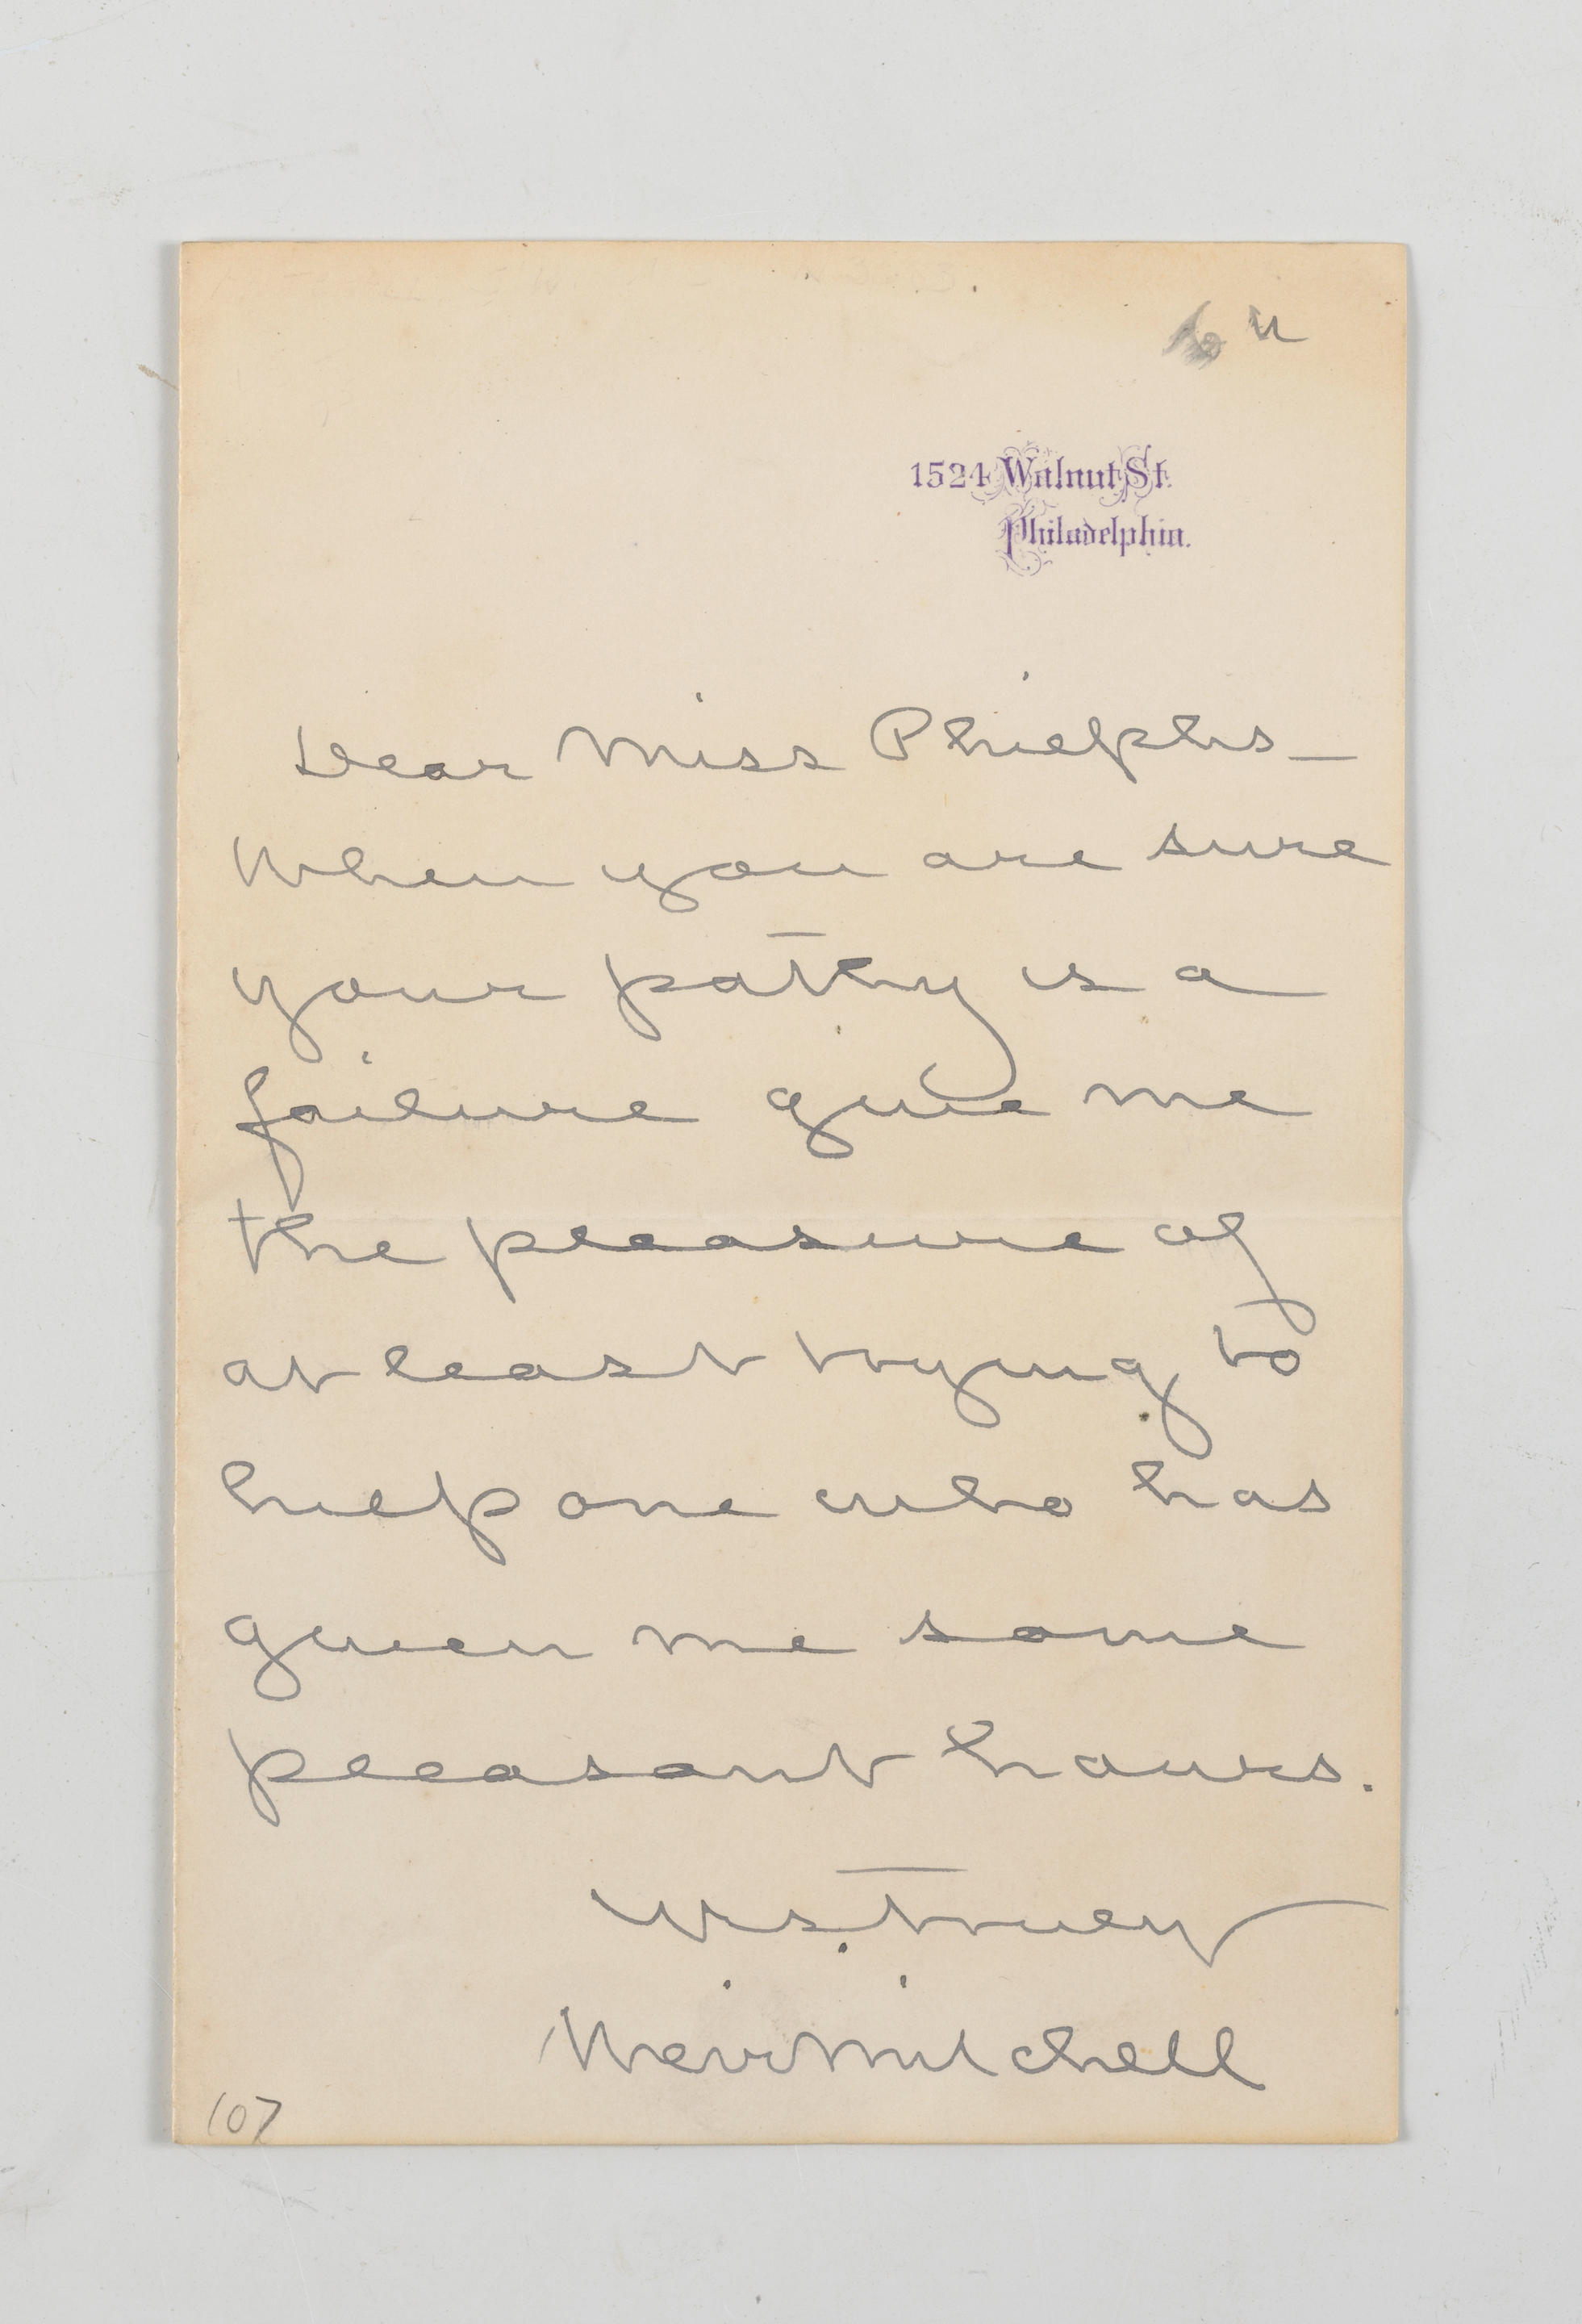 1524 Walnut St.
Philadelphia.
Dear Miss Phelps—
When you are sure
your pathy is a
failure give me
the pleasure of
at least trying to
help one who has
given me some
pleasant hours.
Vrs. truly
Weir Mitchell
107